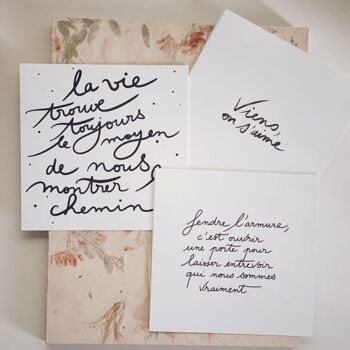 la vie
trouve
toujours
le moyen
de nous
montrer le
chemin
Viens,
on s'aime
fendre l'armure,
c'est ouvrir
une porte pour
laisser entrevoir
qui nous sommes
vraiment.